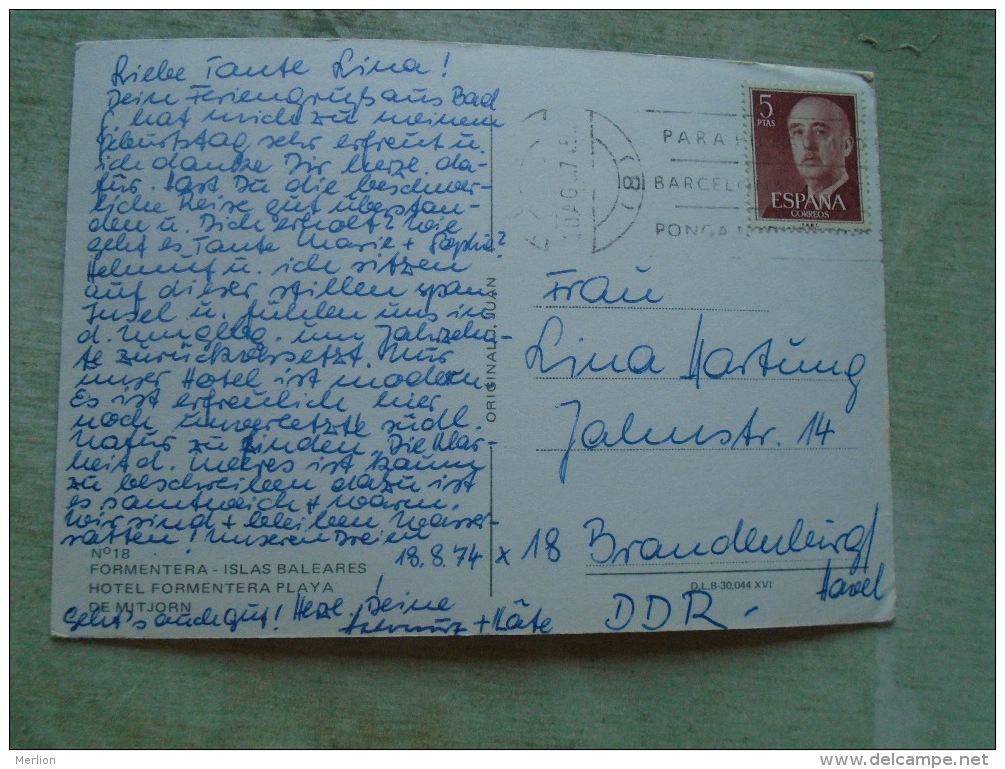 Liebe Tante Lina!
Dein Feriengruß aus Bad
hat mich zu meinem
Geburtstag sehr erfreut u.
ich danke Dir herzl. da-
für. Hast Du die beschwer-
liche Reise gut überstan-
den u. Dich erholt? Wie
geht es Tante Marie + Sophie?
Helmut u. ich sitzen
auf dieser stillen span.
Insel u. fühlen uns in
d. Umgebg. um Jahrzehn-
te zurückversetzt. Nur
unser Hotel ist modern.
Es ist erfreulich hier
noch unverletzte südl.
Natur zu finden. Die Klar-
heit d. Meeres ist kaum
zu beschreiben dazu ist
es samtweich + warm.
Wir sind + bleiben Wasser-
ratten! Unseren Dreien
geht's auch gut! Herzl. Deine
+ Käte
18.8.74
Nº 18
FORMENTERA - ISLAS BALEARES
HOTEL FORMENTERA PLAYA
DE MITJORN
ORIGINAL J. JUAN
PARA
BARCELO
PONGA
5
PTAS
ESPAÑA
CORREOS
Frau
Lina Hartung
Jahnstr. 14
x 18 Brandenburg/
Havel
D.L.B-30.044 XVI
DDR -
Merlion
www.delcampe.net